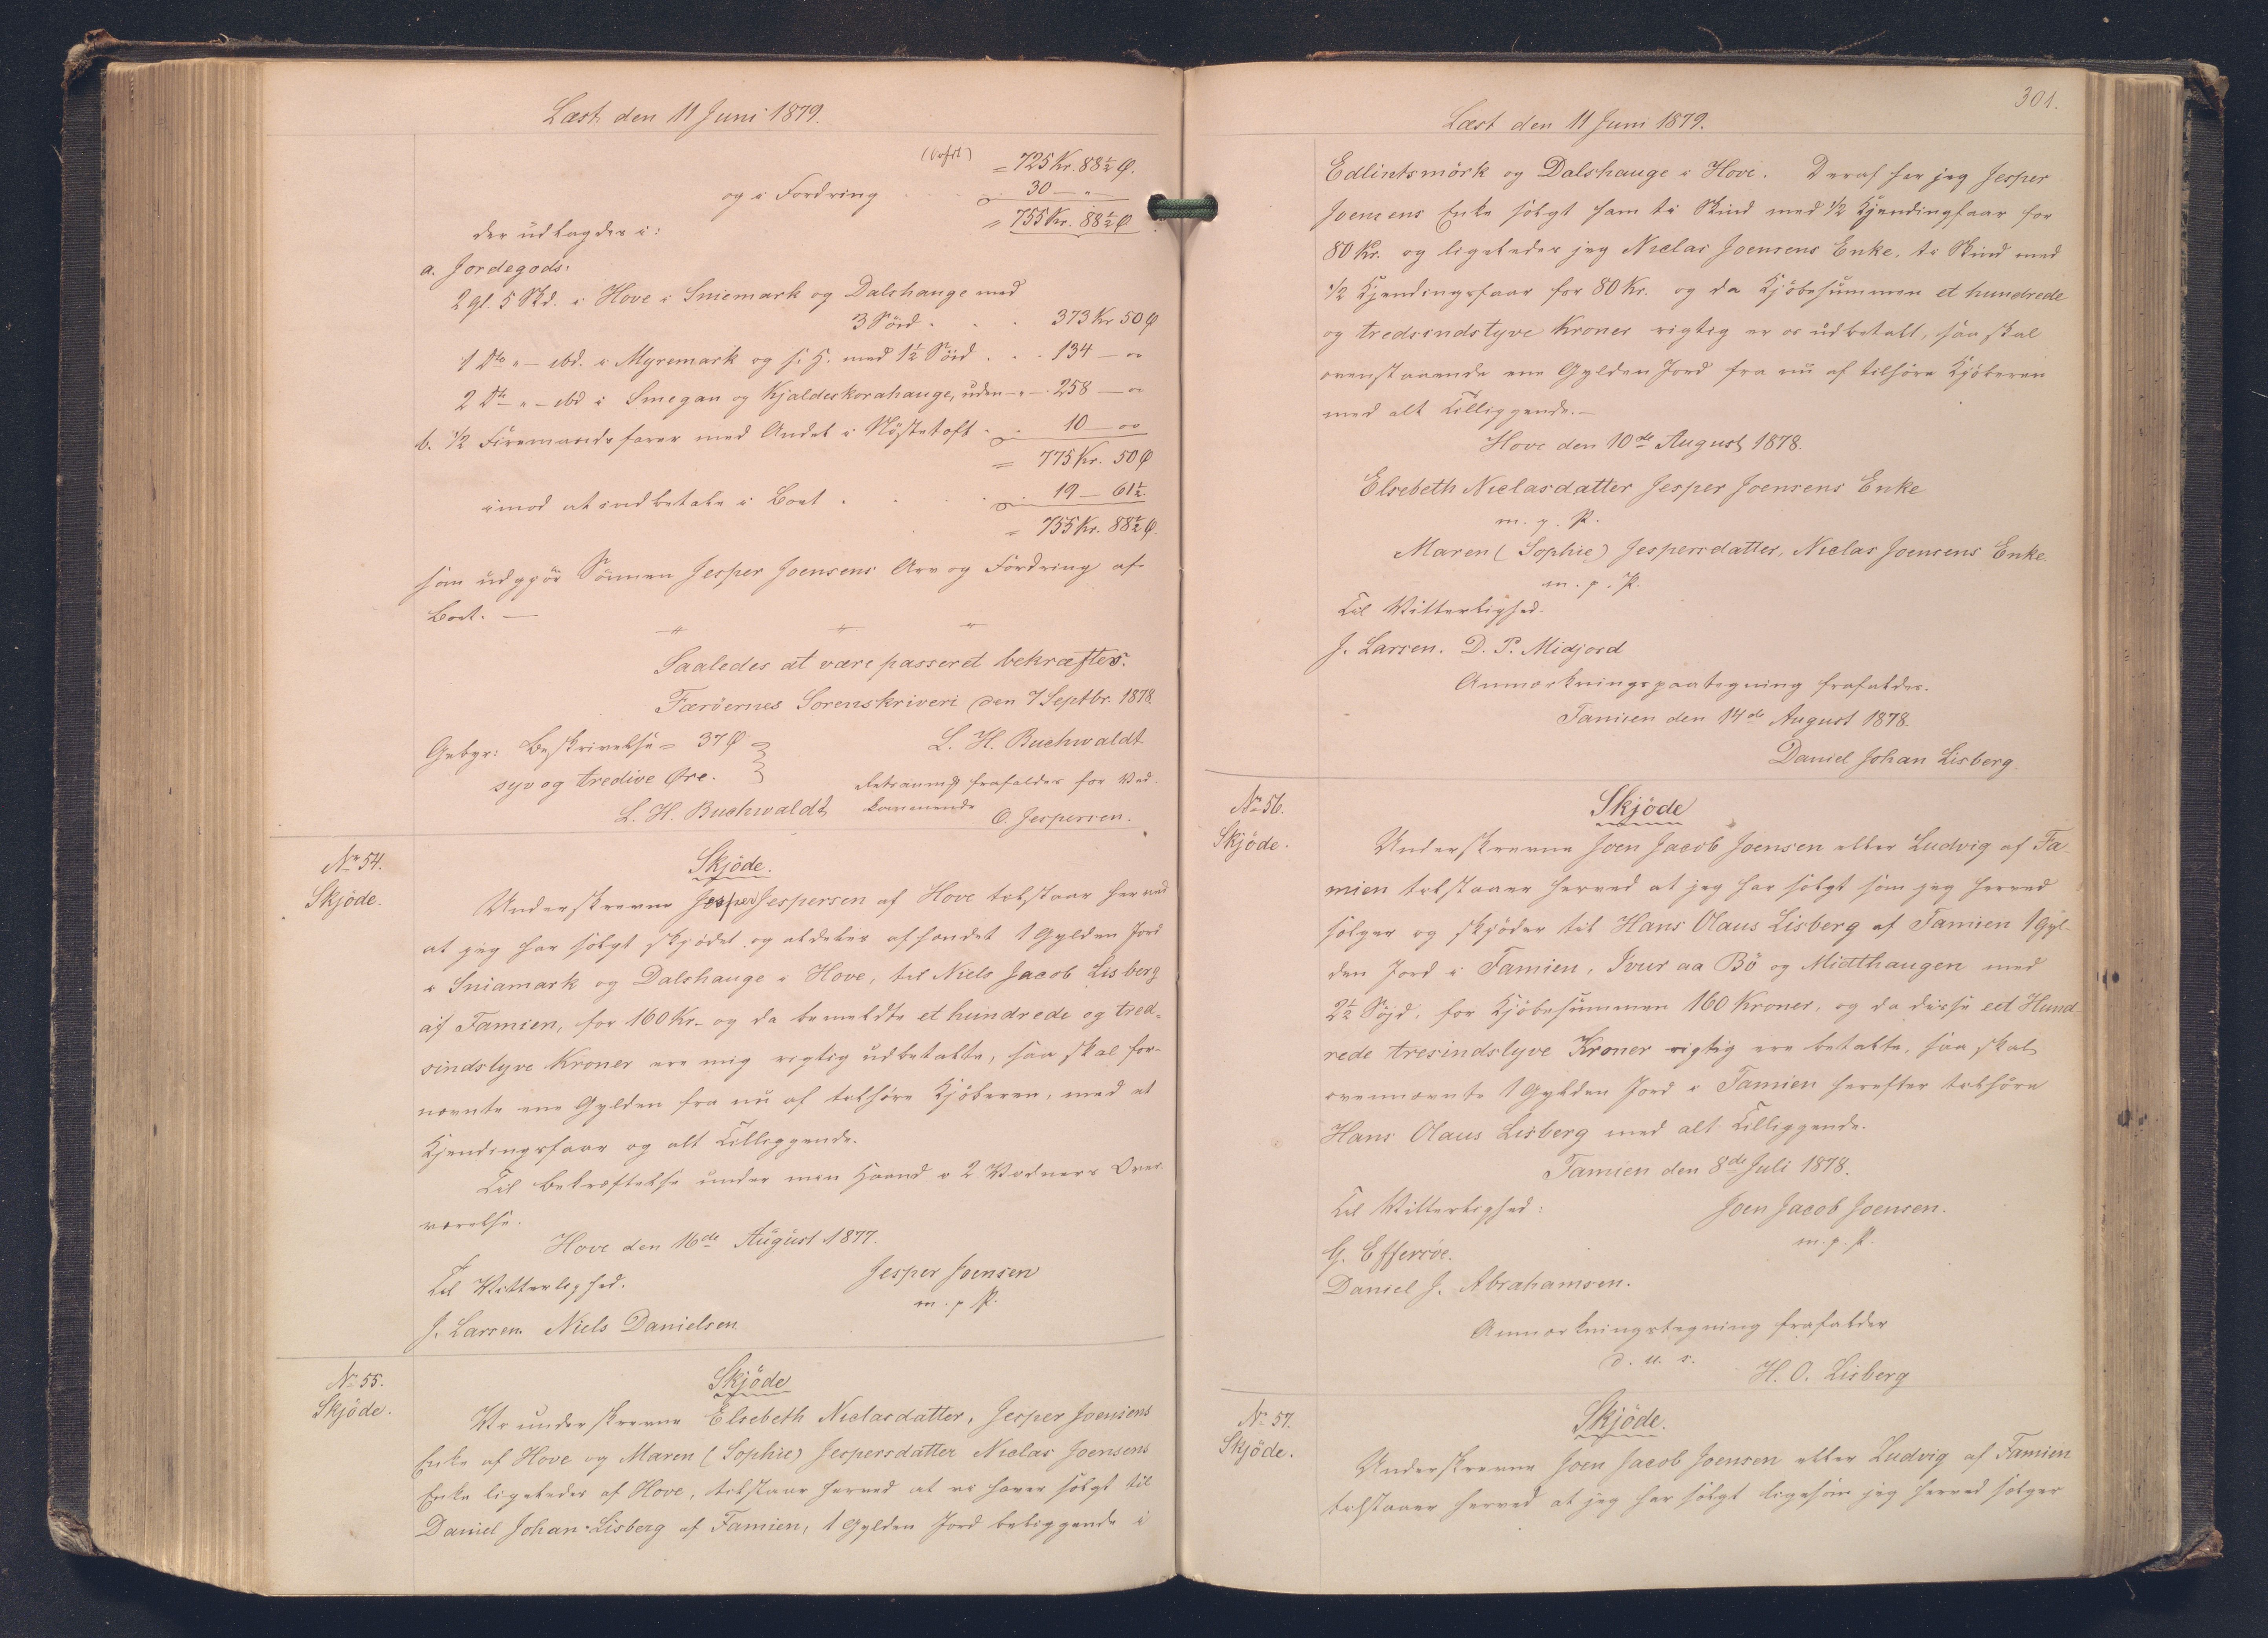 Læst den 11 Juni 1879.
= 725 Kr. 88½ Ø.
og i Fordring 30 — „ —
= 755 Kr. 88½ Ø
der udlagdes i:
a. Jordegods:
2 Gl. 5 Skd. i Hove i Sniemark og Dalshauge med
3 Söid . . . 373 Kr 50 Ø
1 Do „ — ibd. i Myremark og s. H. med 1½ Söid . . . 134 — „
2 Do „ — ibd i Smegan og Kjaldeskorahauge, uden — „ — . 258 — „
b. ½ Firemandsfarer med Andel i Nöstetoft . . 10 — „
= 775 Kr. 50 Ø
imod at indbetale i Boet . . . . 19 — 61½
= 755 Kr. 88½ Ø.
som udgjör Sönnen Jesper Joensens Arv og Fordring af
Boet. —
Saaledes at være passeret bekræftes.
Færöernes Sorenskriveri den 7 Septbr. 1878.
Gebyr: Beskrivelse = 37 Ø
L. H. Buchwaldt
syv og tredive Øre.
L. H. Buchwaldt
frafaldes for Ved-
kommende
O. Jespersen.
No 54.
Skjöde.
Skjöde.
Underskrevne Jesper Jespersen af Hove tilstaar herved
at jeg har solgt skjödet og aldeles afhændet 1 Gylden Jord
i Sniamark og Dalshauge i Hove, til Niels Jacob Lisberg
af Famien, for 160 Kr. og da bemeldte et hundrede og tred-
sindstyve Kroner ere mig rigtig udbetalte, saa skal for-
nævnte ene Gylden fra nu af tilhöre Kjöberen, med et
Kjendingsfaar og alt Tilliggende.
Til Bekræftelse under min Haand i 2 Vidners Over-
værelse.
Hove den 16de August 1877.
Til Vitterlighed.
Jesper Joensen
m. p. P.
J. Larsen. Niels Danielsen
No 55.
Skjöde.
Skjöde
Vi underskrevne Elsebeth Niclasdatter, Jesper Joensens
Enke af Hove og Maren (Sophie) Jespersdatter Niclas Joensens
Enke ligeledes af Hove, tilstaar herved at vi haver solgt til
Daniel Johan Lisberg af Famien, 1 Gylden Jord beliggende i
301.
Læst den 11 Juni 1879.
Edlintsmörk og Dalshauge i Hove. Deraf har jeg Jesper
Joensens Enke solgt ham ti Skind med ½ Kjendingfaar for
80 Kr. og ligeledes jeg Niclas Joensens Enke, ti Skind med
½ Kjendingsfaar for 80 Kr. og da Kjöbesummen et hundrede
og tredsindstyve Kroner rigtig er os udbetalt, saa skal
ovenstaaende ene Gylden Jord fra nu af tilhöre Kjöberen
med alt Tilliggende. —
Hove den 10de August 1878.
Elsebeth Niclasdatter Jesper Joensens Enke
m. p. P.
Maren (Sophie) Jespersdatter, Niclas Joensens Enke.
m. p. P.
Til Vitterlighed.
J. Larsen. D. P. Midjord
Anmærkningspaategning frafaldes.
Famien den 14de August 1878.
Daniel Johan Lisberg.
No 56.
Skjöde.
Skjöde
Underskrevne Joen Jacob Joensen eller Ludvig af Fa-
mien tilstaaer herved at jeg har solgt som jeg herved
sælger og skjöder til Hans Olaus Lisberg af Famien 1 Gyl-
den Jord i Famien, Ivur aa Bö og Midthaugen med
2½ Söjd, for Kjöbesummen 160 Kroner, og da disse eet Hund-
rede tresindstyve Kroner rigtig ere betalte, saa skal
ovennævnte 1 Gylden Jord i Famien herefter tilhöre
Hans Olaus Lisberg med alt Tilliggende.
Famien den 8de Juli 1878.
Til Vitterlighed:
Joen Jacob Joensen.
m. p. P.
G. Effersöe.
Daniel J. Abrahamsen.
Anmærkningstegning frafalder
d. u. s.
H. O. Lisberg
No 57.
Skjöde.
Skjöde.
Underskrevne Joen Jacob Joensen eller Ludvig af Famien
tilstaaer herved at jeg har solgt ligesom jeg herved sælger